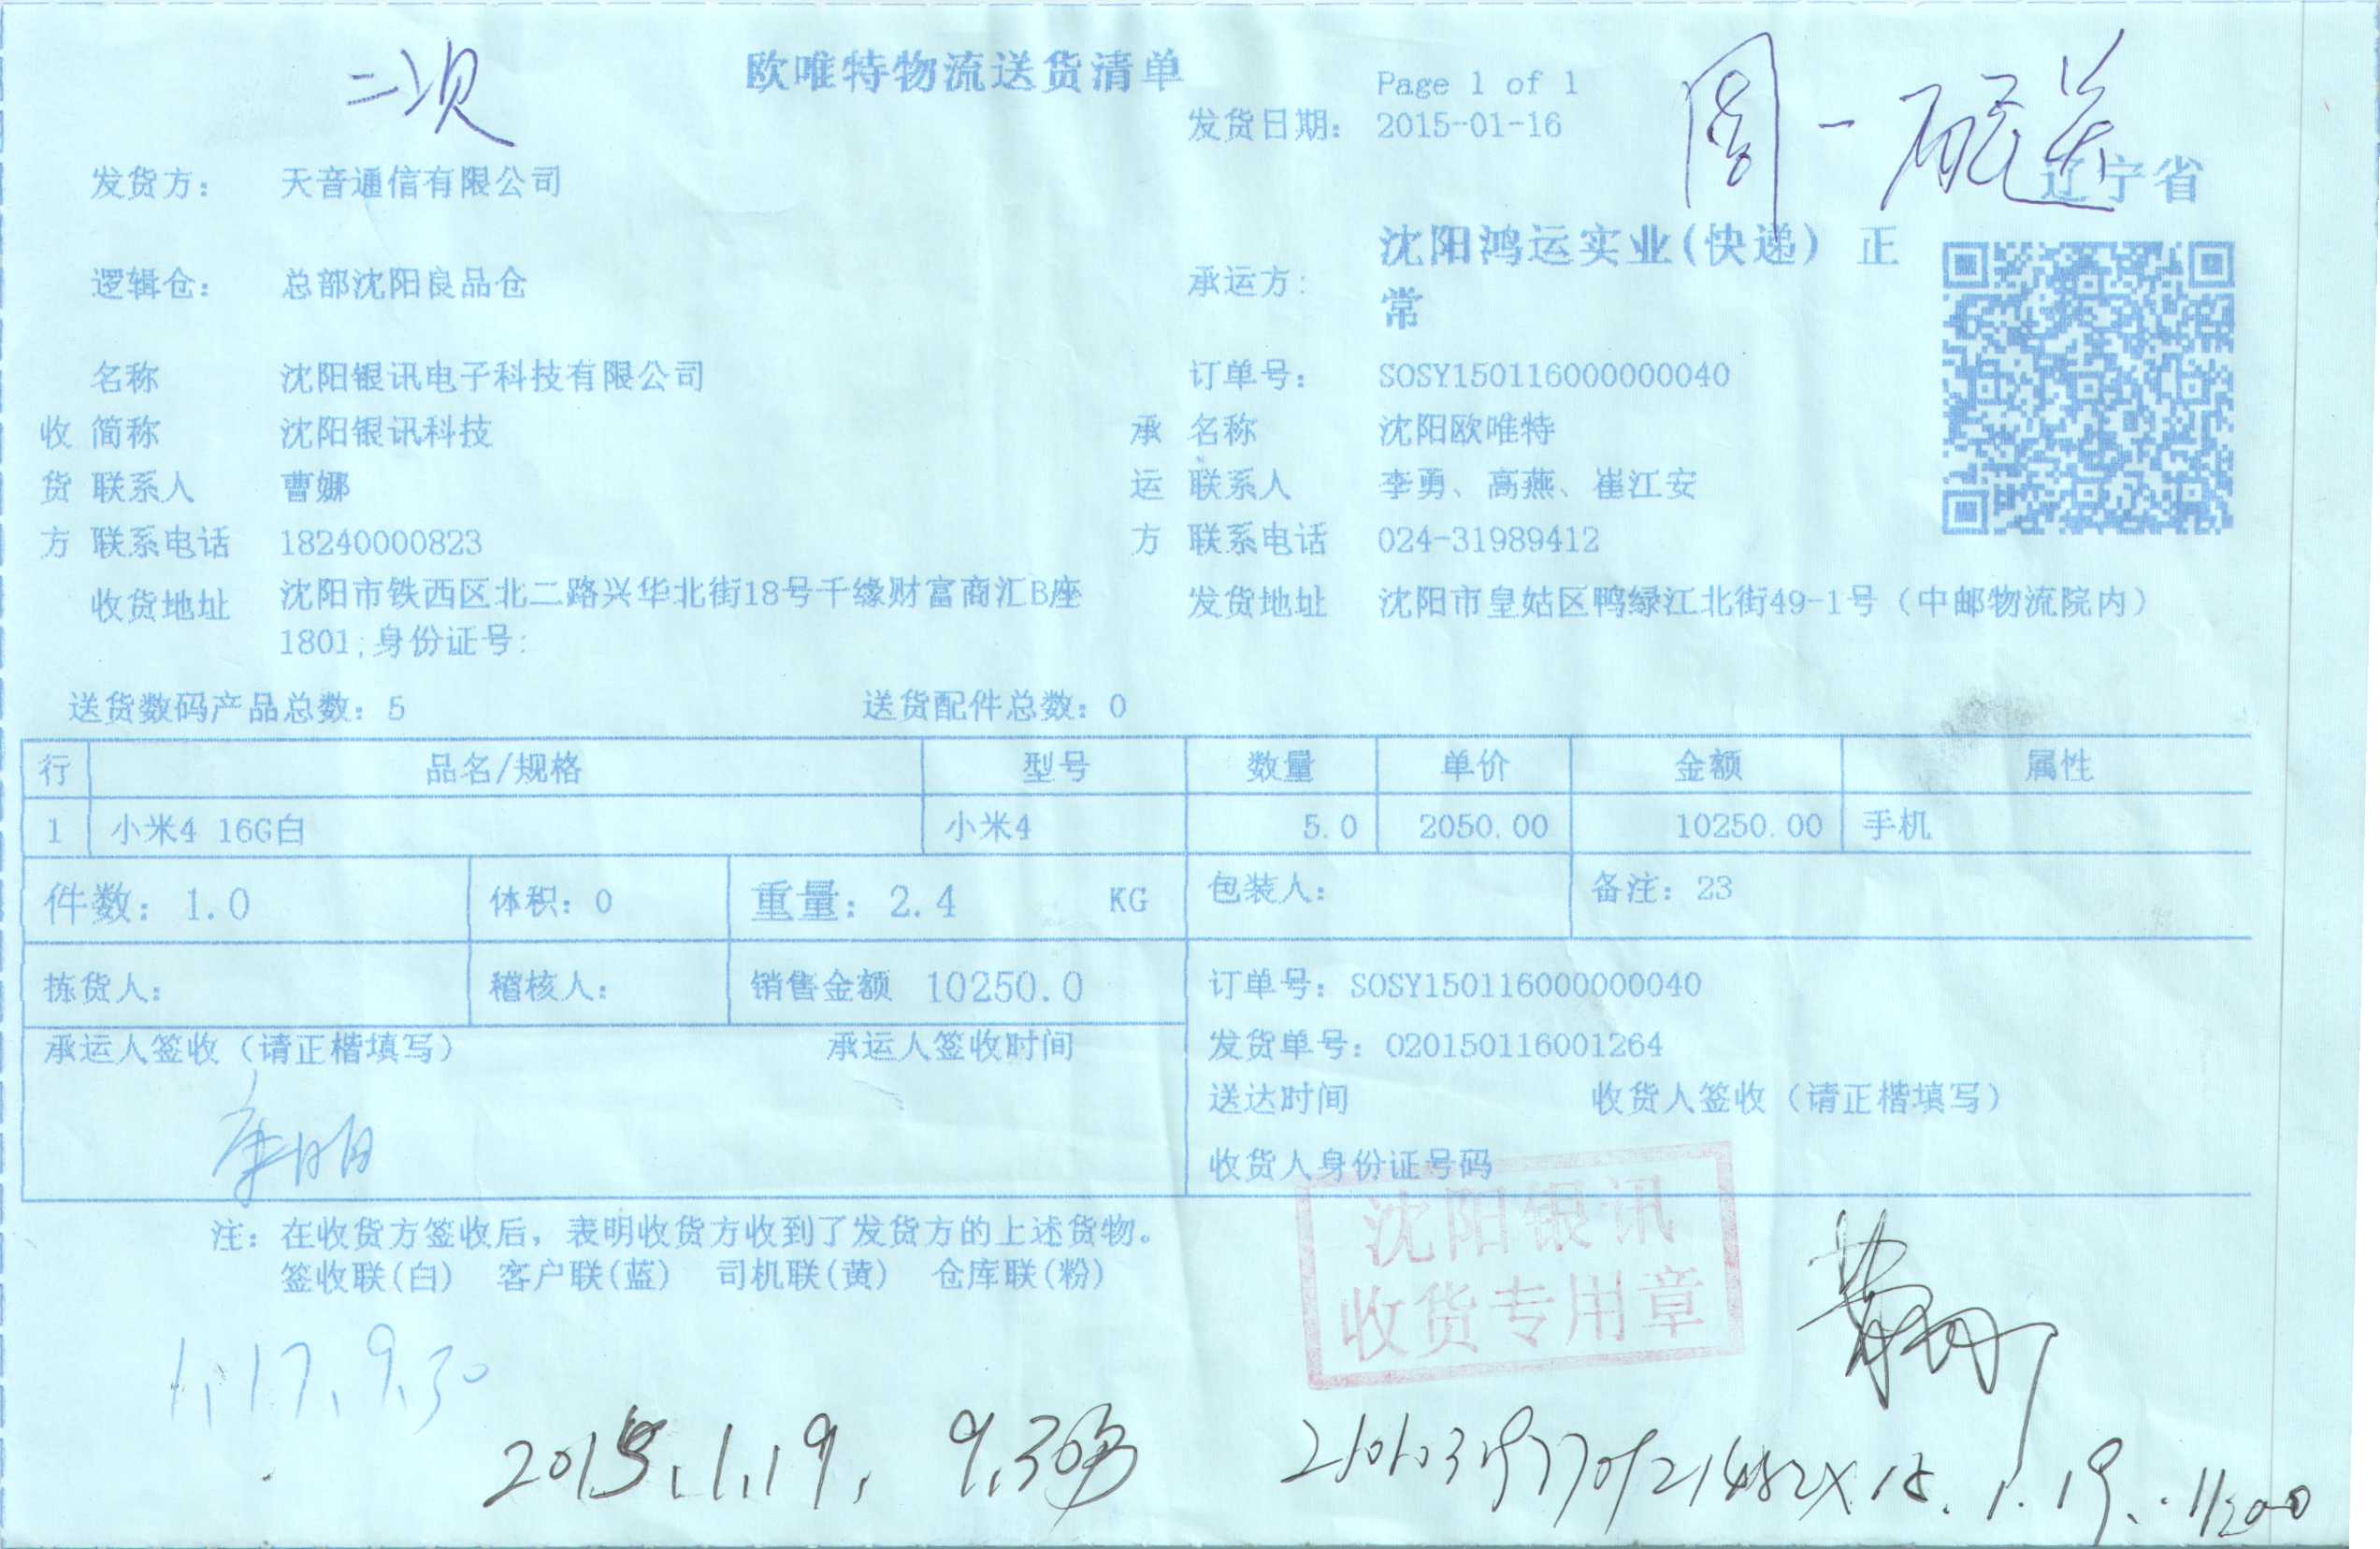 二次
欧唯特物流送货清单
Page 1 of 1
发货日期: 2015-01-16
周一配送
辽宁省
发货方: 天音通信有限公司
逻辑仓: 总部沈阳良品仓
承运方: 沈阳鸿运实业(快递) 正
常
名称 沈阳银讯电子科技有限公司
订单号: SOSY150116000000040
收 简称 沈阳银讯科技
承 名称 沈阳欧唯特
货 联系人 曹娜
运 联系人 李勇、高燕、崔江安
方 联系电话 18240000823
方 联系电话 024-31989412
收货地址 沈阳市铁西区北二路兴华北街18号千缘财富商汇B座
1801;身份证号:
发货地址 沈阳市皇姑区鸭绿江北街49-1号（中邮物流院内）
送货数码产品总数: 5 送货配件总数: 0
行 品名/规格 型号 数量 单价 金额 属性
1 小米4 16G白 小米4 5.0 2050.00 10250.00 手机
件数: 1.0 体积: 0 重量: 2.4 KG 包装人: 备注: 23
拣货人: 稽核人: 销售金额 10250.0 订单号: SOSY150116000000040
承运人签收（请正楷填写） 承运人签收时间
发货单号: 020150116001264
送达时间 收货人签收（请正楷填写）
收货人身份证号码
沈阳银讯
收货专用章
注: 在收货方签收后，表明收货方收到了发货方的上述货物。
签收联(白) 客户联(蓝) 司机联(黄) 仓库联(粉)
1.17.9.30
2015.1.19. 9.30
15.1.19. 11:00